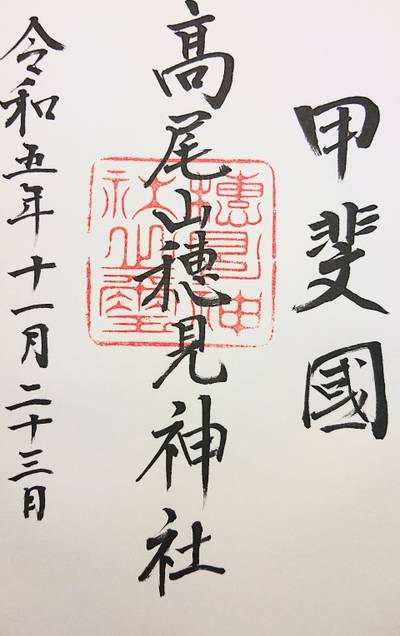 甲斐國
髙尾山穂見神社
穂見神
社之璽
令和五年十一月二十三日